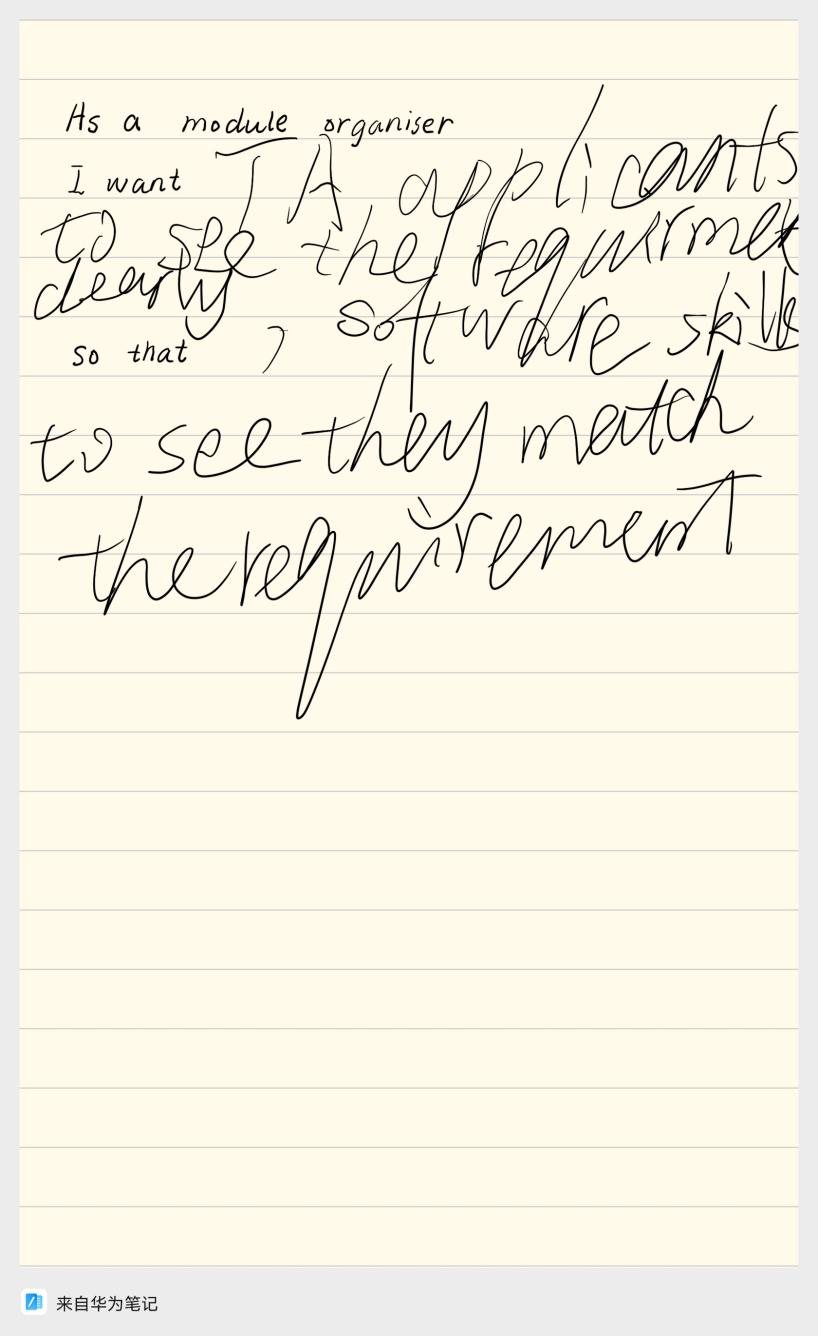 As a module organiser
I want TA applicants
to see the requirmet
clearly
so that , software skills
to see they match
the requirement
来自华为笔记